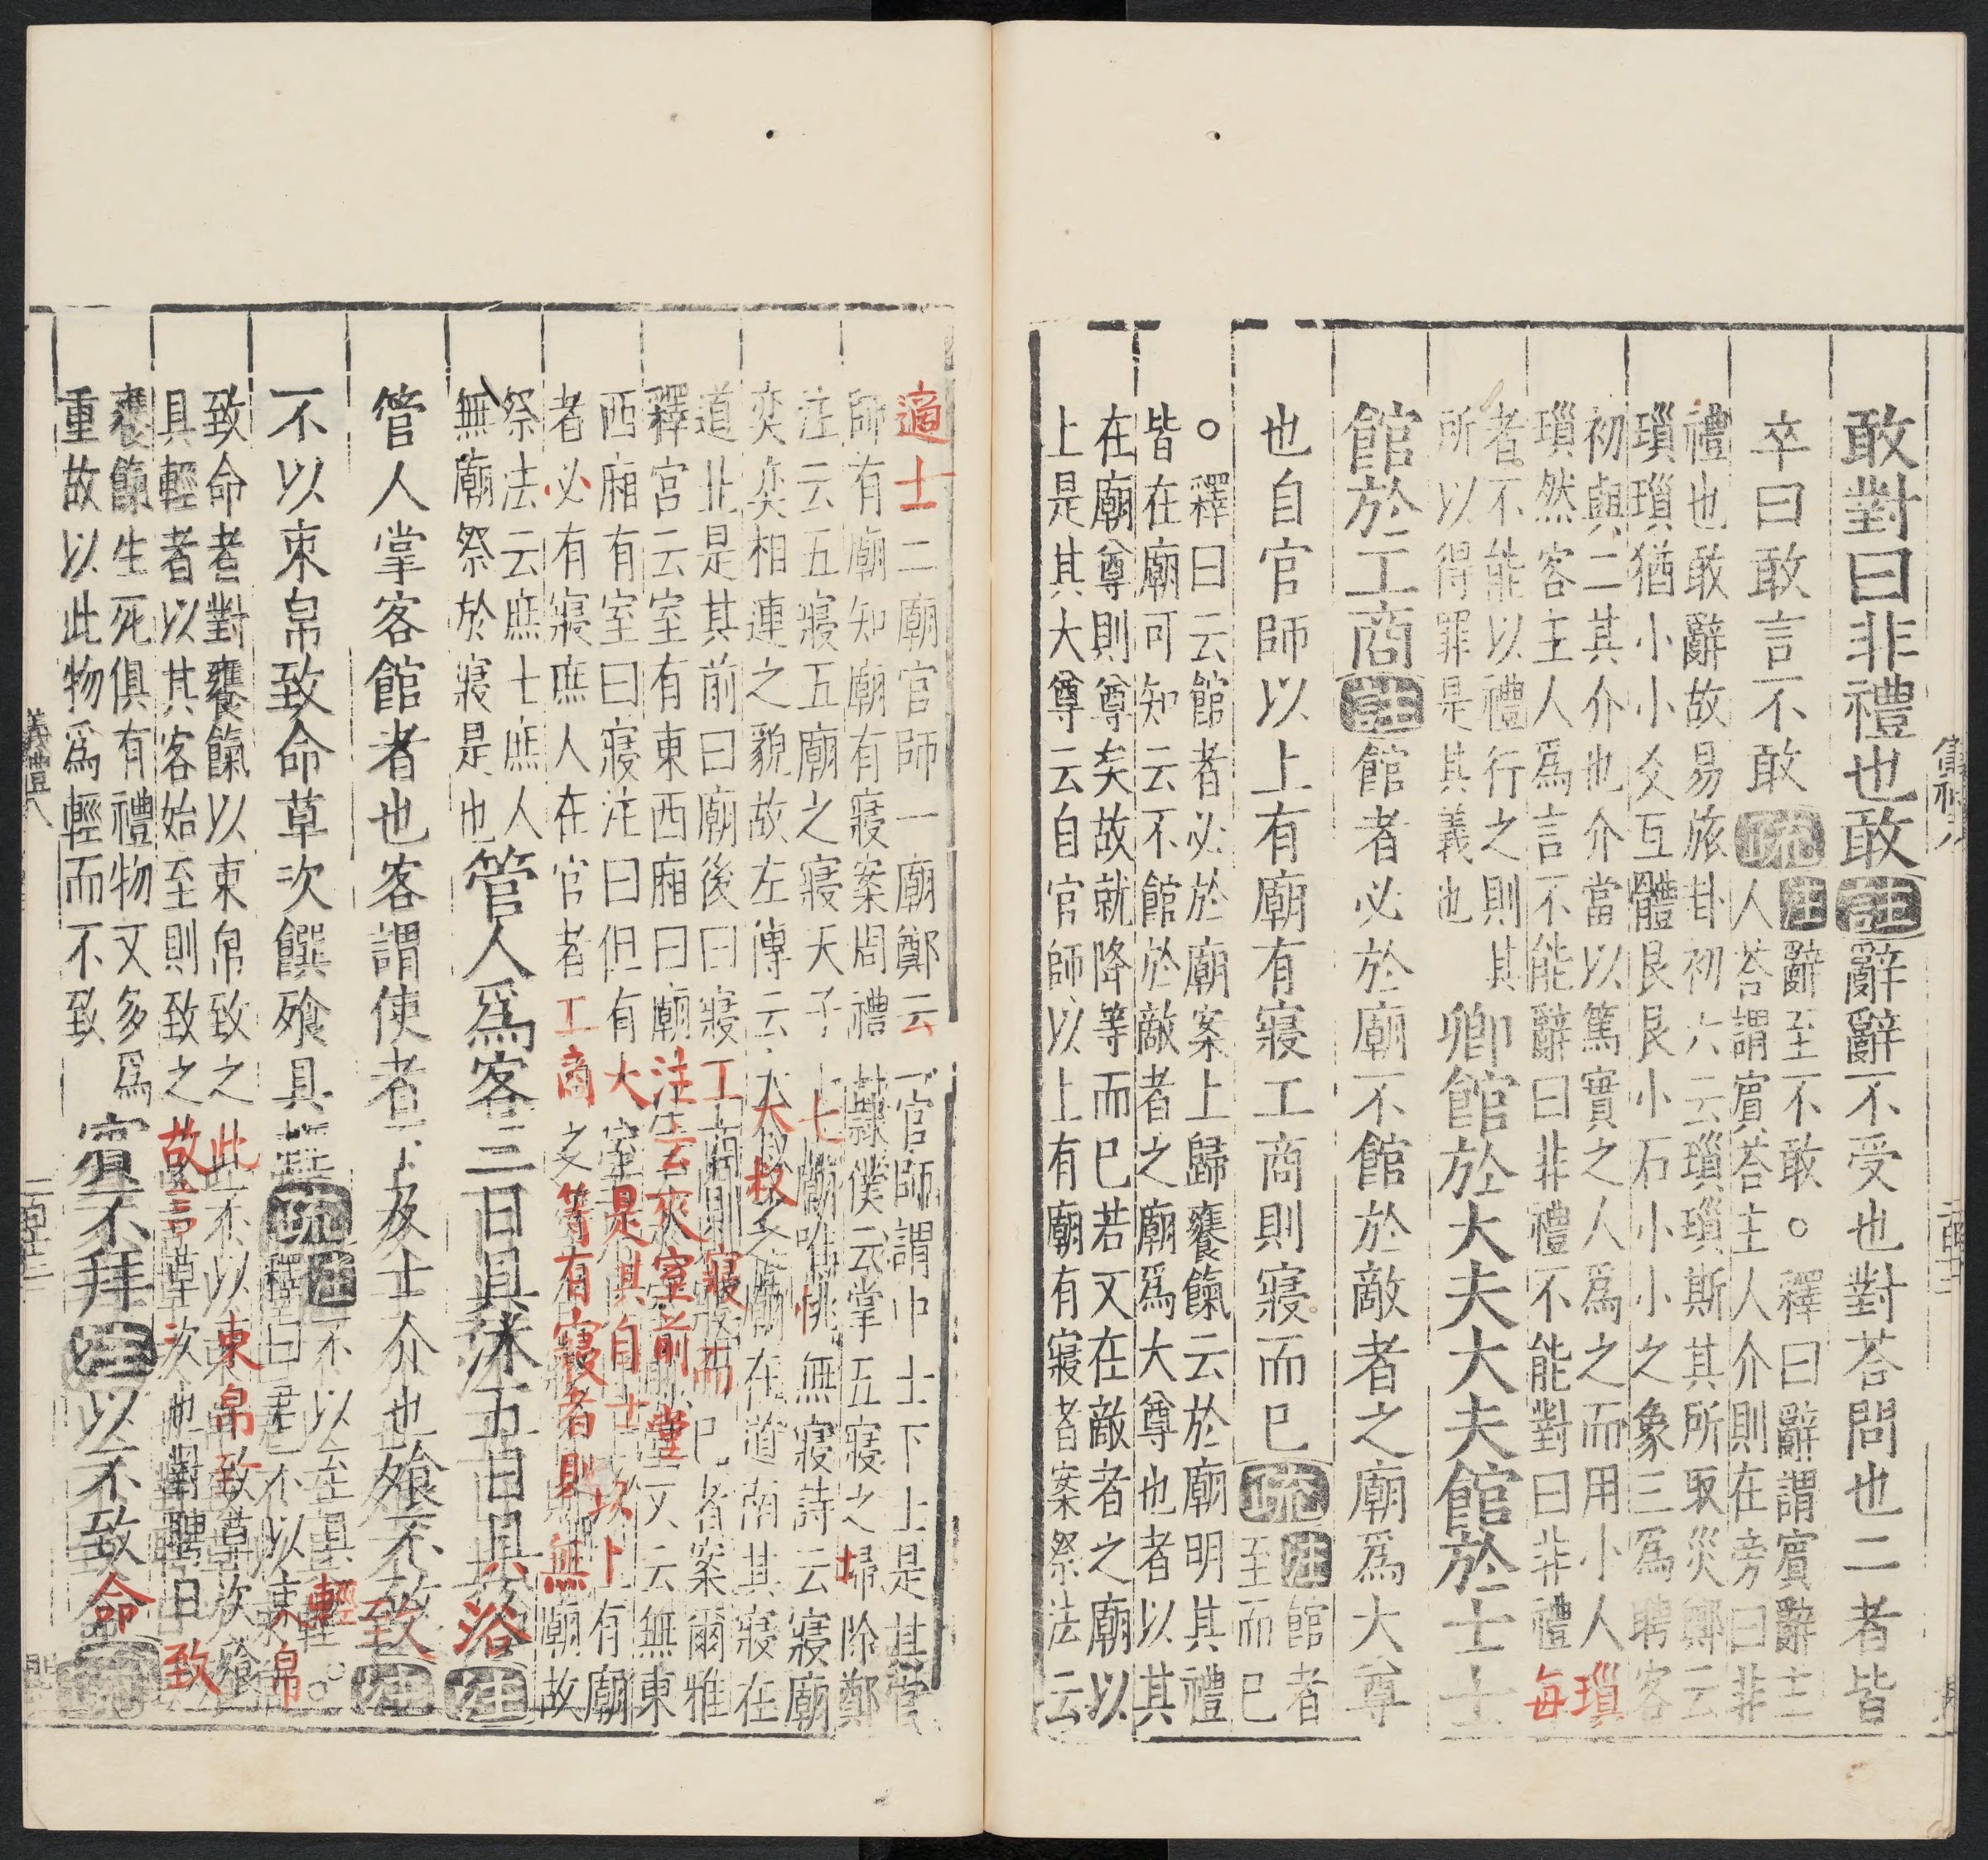 敢對曰非禮也敢註辭辭不受也對荅問也二者皆
卒曰敢言不敢疏
注辭至不敢○釋曰辭謂賓辭主
人荅謂賓荅主人介則在旁曰非
禮也敢辭故易旅卦初六云瑣瑣斯其所取災鄭云
瑣瑣猶小小爻互體艮艮小石小小之象三爲聘客
初與二其介也介當以篤實之人爲之而用小人瑣
瑣然客主人爲言不能辭曰非禮不能對曰非禮每
者不能以禮行之則其
所以得罪是其義也
卿館於大夫大夫館於士士
館於工商註館者必於廟不館於敵者之廟爲大尊
也自官師以上有廟有寢工商則寢而已疏
注館者
至而已
○釋曰云館者必於廟案上歸饔餼云於廟明其禮
皆在廟可知云不館於敵者之廟爲大尊也者以其
在廟尊則尊矣故就降等而已若又在敵者之廟以
上是其大尊云自官師以上有廟有寢者案祭法云
適士二廟官師一廟鄭云官師謂中士下士是其官
師有廟知廟有寢案周禮隸僕云掌五寢之埽除鄭
注云五寢五廟之寢天子七廟唯祧無寢詩云寢廟
奕奕相連之貌故左傳云大叔之廟在道南其寢在
道北是其前曰廟後曰寢工商則寢而已者案爾雅
釋宮云室有東西廂曰廟注云夾室前堂又云無東
西廂有室曰寢注曰但有大室是其自士以上有廟
者必有寢庶人在官者工商之等有寢者則無廟故
祭法云庶士庶人
無廟祭於寢是也
管人爲客三日具沐五日具浴注
管人掌客館者也客謂使者下及士介也飧不致注
不以束帛致命草次饌飧具輕疏
注不以至具輕○
釋曰君不以束帛
致命者對饔餼以束帛致之此不以束帛致草次飧
具輕者以其客始至則致之故言草次也對聘日致
饔餼生死俱有禮物又多爲
重故以此物爲輕而不致
賓不拜注以不致命疏